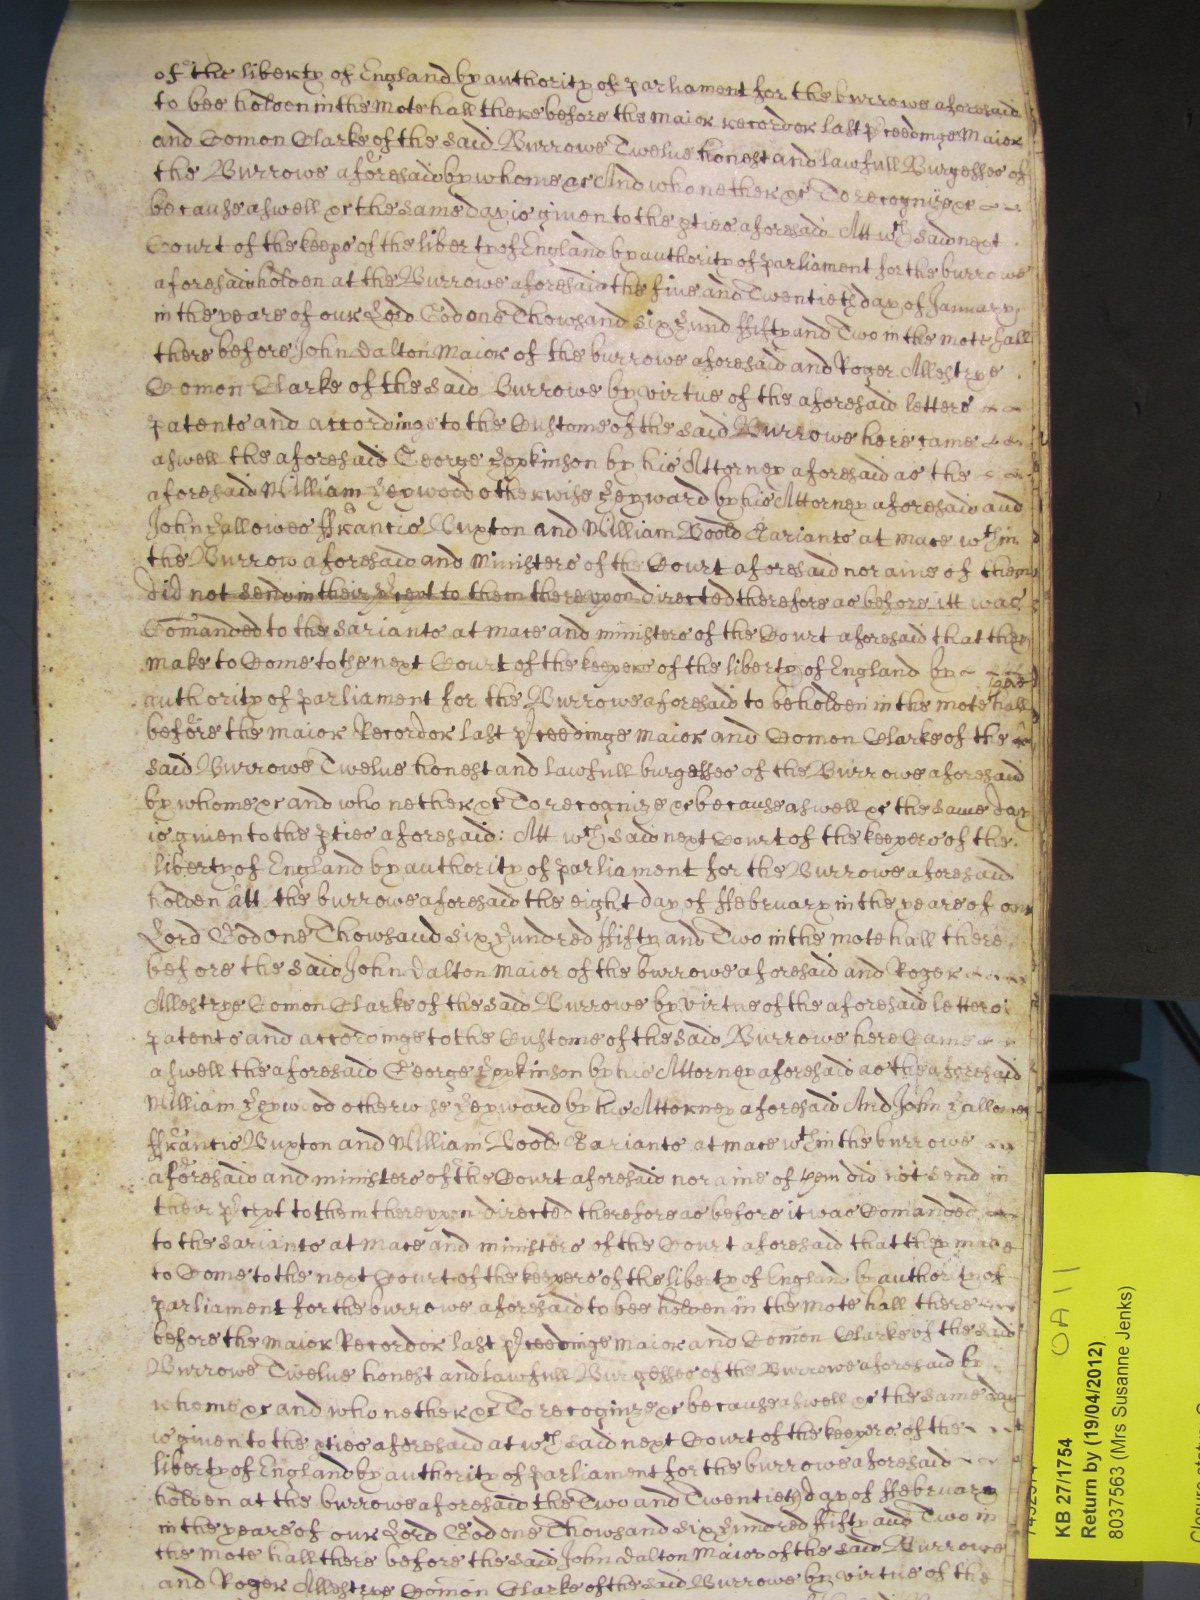 of the liberty of England by authority of parliament for the burrowe aforesaid
to bee holden in the Mote hall there before the maior recordor last p'ceedinge Maior
and Comon Clarke of the said Burrowe Twelue honest and lawfull Burgesses of
the Burrowe aforesaid by whome &c And who nether &c To recognize &c
because aswell &c the same day is given to the pties aforesaid Att wch said next
Court of the keeps of the liberty of England by authority of parliament for the burrowe
aforesaid holden at the Burrowe aforesaid the five and Twentieth day of January
in the yeare of our Lord God one Thowsand Six Hund ffifty and Two in the mote hall
there before John Dalton Maior of the burrowe aforesaid and Roger Allestrye
Comon Clarke of the said Burrowe by virtue of the aforesaid letters
patents and accordinge to the Custome of the said Burrowe here came
aswell the aforesaid George Hopkinson by his Attorney aforesaid as the
aforesaid William Heywood otherwise Heyward by his Attorney aforesaid and
John Hallowes ffrancis Buxton and William Boold Sariants at mace wthin
the Burrow aforesaid and Ministers of the Court aforesaid nor anie of them
did not send in their p'cept to them thereupon directed therefore as before itt was
Comanded to the Sariants at mace and ministers of the Court aforesaid that they
make to Come to the next Court of the keepers of the liberty of England by
authority of parliament for the Burrowe aforesaid to be holden in the mote hall
before the maior Recordor last p'ceedinge Maior and Comon Clarke of the
said Burrowe Twelue honest and lawfull burgesses of the Burrowe aforesaid
by whome &c and who nether &c To recognize &c because aswell &c the same day
is given to the pties aforesaid: Att wch said next Court of the keepers of the
liberty of England by authority of parliament for the Burrowe aforesaid
holden att the burrowe aforesaid the eight day of ffebruary in the yeare of our
Lord God one Thowsand Six Hundred ffifty and Two in the mote hall there
before the said John Dalton maior of the burrowe aforesaid and Roger
Allestrye Comon Clarke of the said Burrowe by virtue of the aforesaid letters
patents and accordinge to the Custome of the said Burrowe here Came
aswell the aforesaid George Hopkinson by his Attorney aforesaid as the aforesaid
William Heywood otherwise Heyward by his Attorney aforesaid And John Hallowes
ffrancis Buxton and William Boold Sariants at mace wthin the burrowe
aforesaid and ministers of the Court aforesaid nor anie of them did not send in
their p'cept to them thereupon directed therefore as before it was Comanded
to the Sariants at Mace and ministers of the Court aforesaid that they make
to Come to the next Court of the keepers of the liberty of England by authority of
parliament for the burrowe aforesaid to bee holden in the mote hall there
before the maior Recordor last p'ceedinge maior and Comon Clarke of the said
Burrowe Twelue honest and lawfull Burgesses of the Burrowe aforesaid by
whome &c and who nether &c To recoginze &c because aswell &c the same day
is given to the pties aforesaid at wch said next Court of the keepers of the
liberty of England by authority of parliament for the burrowe aforesaid
holden at the burrowe aforesaid the Two and Twentieth day of ffebruary
in the yeare of our Lord God one Thowsand Six Hundred ffifty and Two in
the Mote hall there before the said John Dalton Maior of the said Burrowe
and Roger Allestrye Comon Clarke of the said Burrowe by virtue of the
KB 27/1754
Return by (19/04/2012)
8037563 (Mrs Susanne Jenks)
OA11